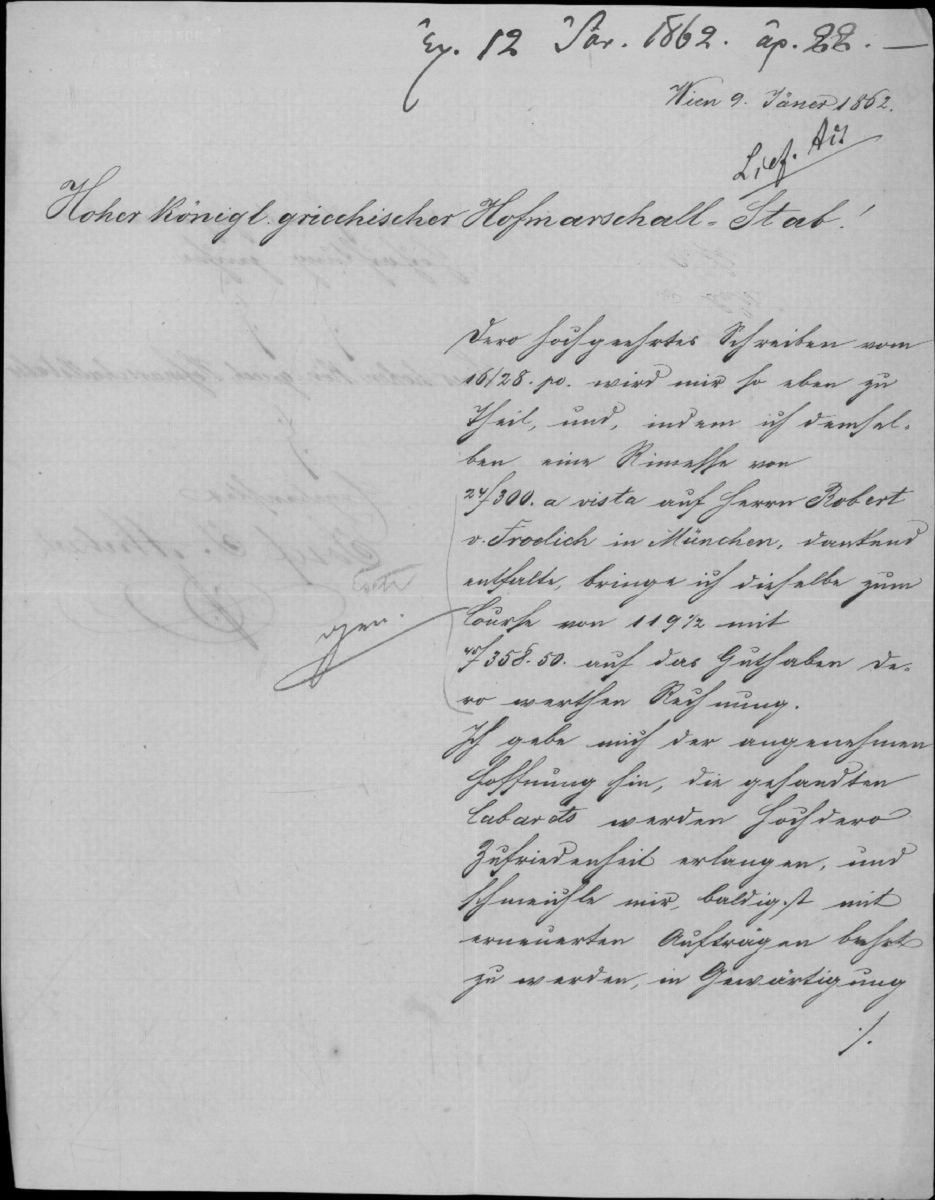 Ἐλ. 12 Ἰαν. 1862. ἀρ. 22. —
Wien 9. Jäner 1862.
Hoher königl. griechischer Hofmarschall-Stab!
Dero hochgeehrtes Schreiben vom
16/28. po. wird mir so eben zu
Theil, und, indem ich demsel-
ben eine Rimesse von
24/f 300. a vista auf Herrn Robert
v. Froelich in München, dankend
enthalte, bringe ich dieselbe zum
Course von 119 1/2 mit
45/f 358.50. auf das Guthaben De-
ro werthen Rechnung.
Ich gebe mich der angenehmen
Hoffnung hin, die gesandten
werden Hochdero
Zufriedenheit erlangen, und
schmeichle mir, baldigst mit
erneuerten Aufträgen beehrt
zu werden, in Gewärtigung
./.